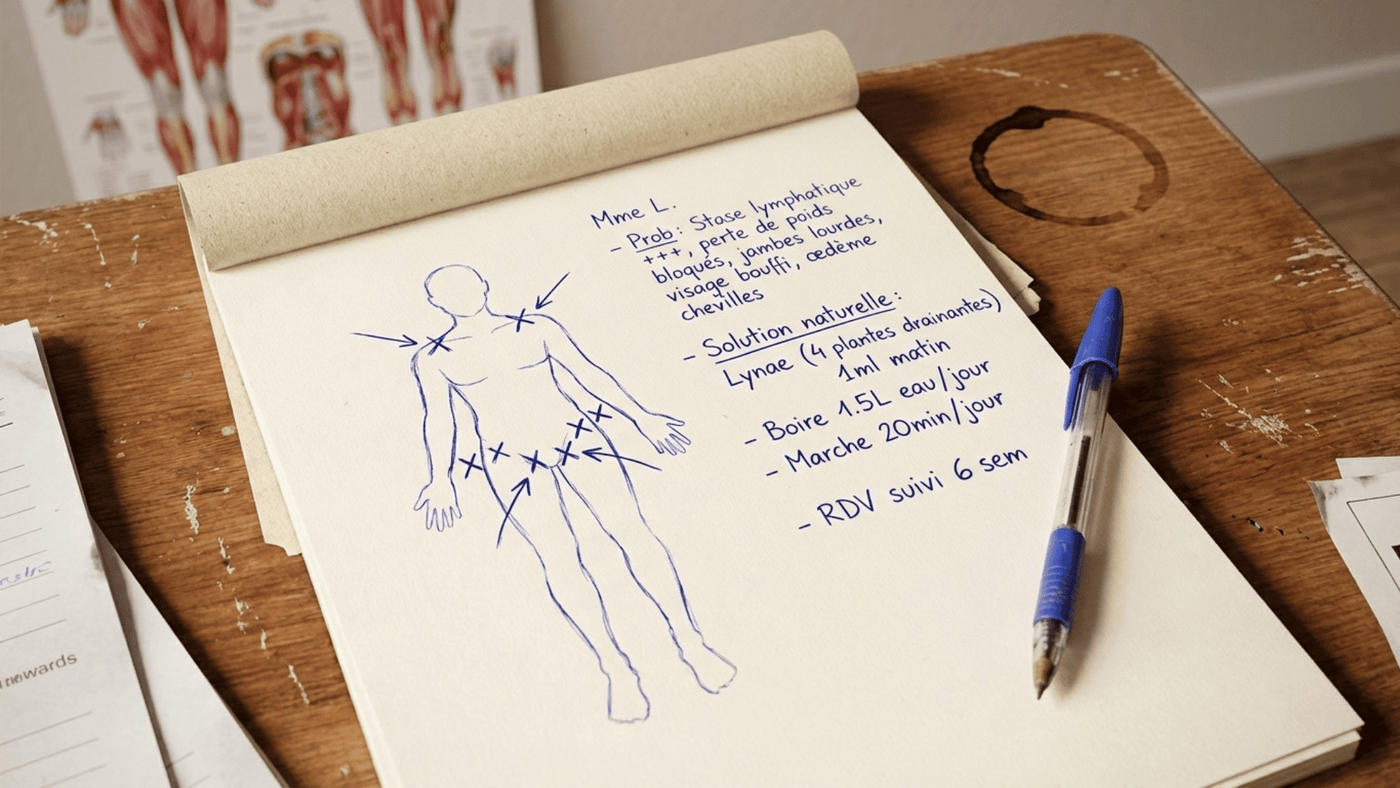 Mme L.
- Prob: Stase lymphatique
+++, perte de poids
bloqués, jambes lourdes,
visage bouffi, œdème
chevilles
- Solution naturelle:
Lynae (4 plantes drainantes)
1ml matin
- Boire 1.5L eau/jour
- Marche 20min/jour
- RDV suivi 6 sem